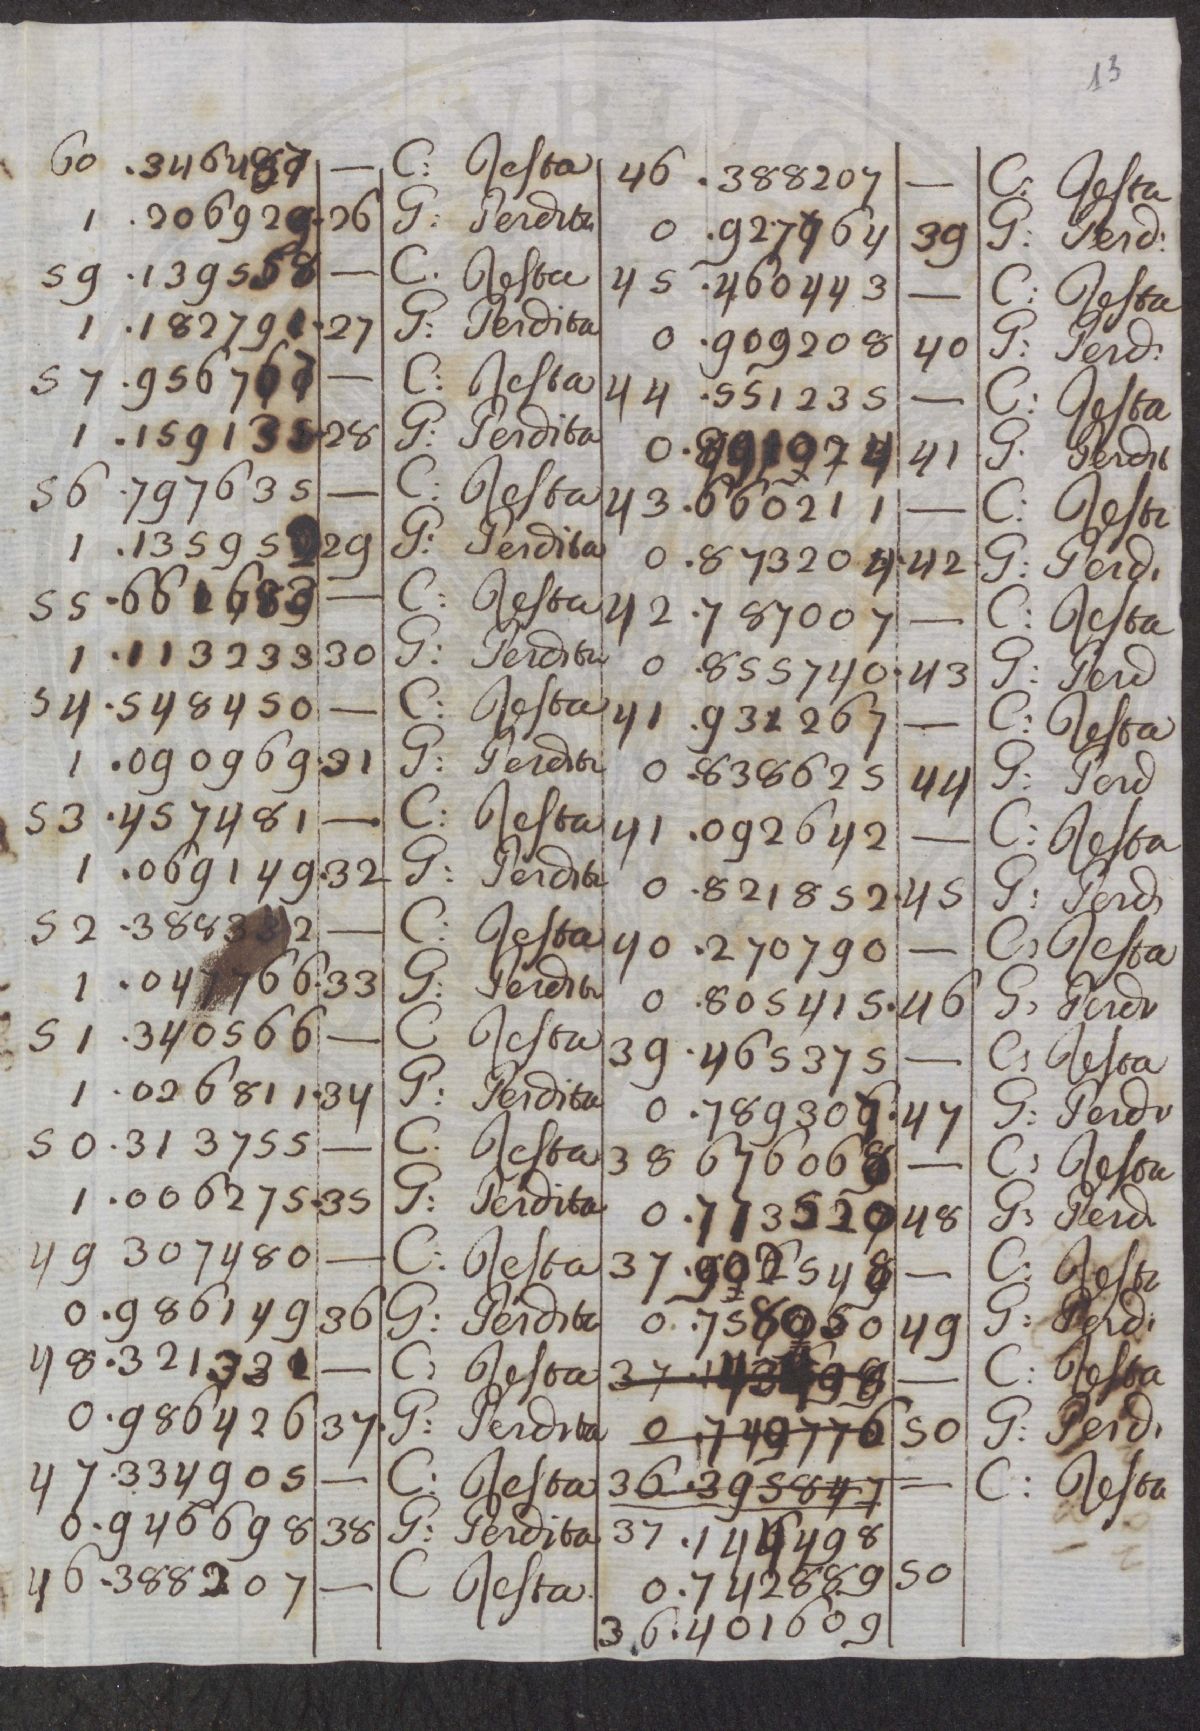 13
60 .346487 — C: Resta
1 .206929.26 G: Perdita
59 .139558 — C. Resta
1 .182791.27 G: Perdita
57 .956767 — C: Resta
1 .159133.28 G: Perdita
56 .797635 — C: Resta
1 .135952 29 G: Perdita
55 .661683 — C: Resta
1 .113233 30 G: Perdita
54 .548450 — C: Resta
1 .090969.31 G: Perdita
53 .457481 — C: Resta
1 .069149.32 G: Perdita
52 .388332 — C: Resta
1 .047766.33 G: Perdita
51 .340566 — C Resta
1 .026811.34 G: Perdita
50 .313755 — C. Resta
1 .006275.35 G: Perdita
49 307480 — C: Resta
0.986149 36 G: Perdita
48.321331 — C: Resta
0.986426 37. G: Perdita
47.334905 — C: Resta
0.946698 38 G: Perdita
46.388207 — C Resta
46 .388207 — C: Resta
0 .927764 39 G: Perd:
45 .460443 — C: Resta
0 .909208 40 G: Perd:
44 .551235 — C: Resta
0. 41 G. Perdit
43.660211 — C: Resta
0 .873204.42 G: Perd.
42 .787007 — C: Resta
0 .855740.43 G: Perd
41 .931267 — C: Resta
0 .838625 44 G: Perd
41 .092642 — C: Resta
0 .821852.45 G: Perd
40 .270790 — C: Resta
0 .805415.46 G: Perd
39 .465375 — C: Resta
0 .789307.47 G: Perd
38 676068 — C: Resta
0 .773520 48 G: Perd
37.902548 — C: Resta
0 .758050 49 G: Perd:
37 — C: Resta
0 .749776 50 G: Perd.
36.395847 — C: Resta
37 .144498
0.742889 50
36.401609